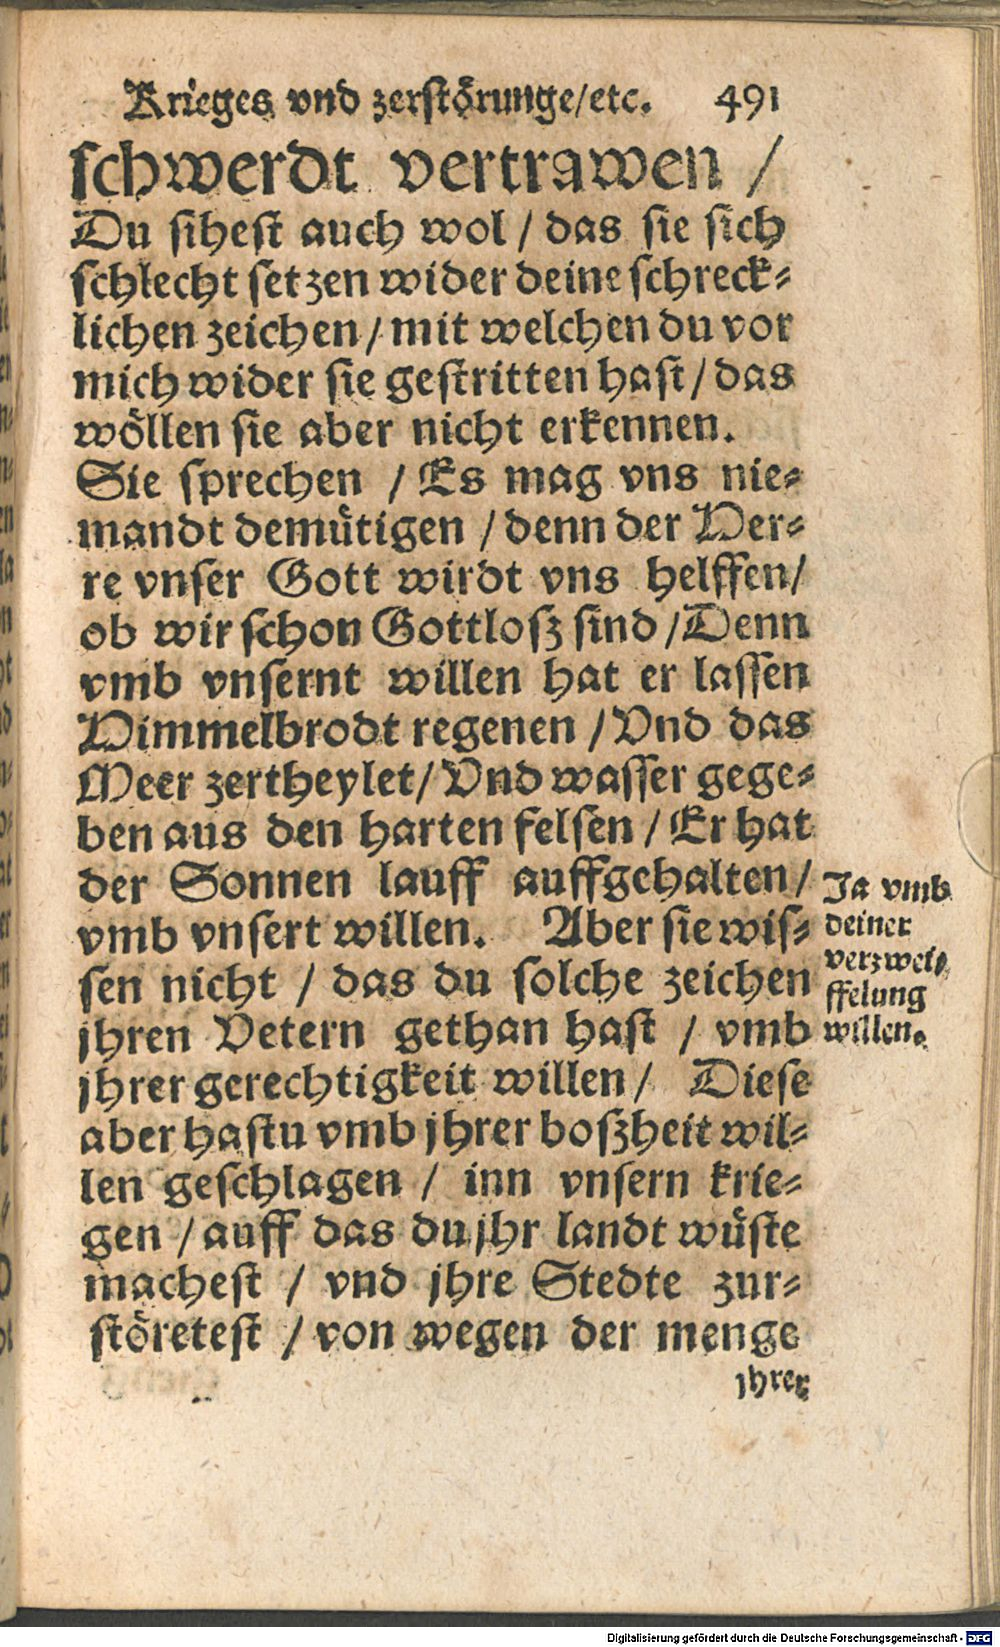 Krieges vnd zerstörunge/etc. 491
schwerdt vertrawen /
Du sihest auch wol / das sie sich
schlecht setzen wider deine schreck-
lichen zeichen / mit welchen du vor
mich wider sie gestritten hast / das
wöllen sie aber nicht erkennen.
Sie sprechen / Es mag vns nie-
mandt demütigen / denn der Her-
re vnser Gott wirdt vns helffen/
ob wir schon Gottlosz sind / Denn
vmb vnsernt willen hat er lassen
Himmelbrodt regenen / Vnd das
Meer zertheylet / Vnd wasser gege-
ben aus den harten felsen / Er hat
der Sonnen lauff auffgehalten /
vmb vnsert willen. Aber sie wis-
sen nicht / das du solche zeichen
jhren Vetern gethan hast / vmb
jhrer gerechtigkeit willen / Diese
aber hastu vmb jhrer boszheit wil-
len geschlagen / inn vnsern krie-
gen / auff das du jhr landt wüste
machest / vnd jhre Stedte zur-
störetest / von wegen der menge
jhrer
Ja vmb
deiner
verzwei-
ffelung
willen.
Digitalisierung gefördert durch die Deutsche Forschungsgemeinschaft - DFG